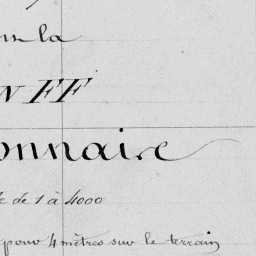 la
N FF
onnaire
de 1 à 4000
pour 4 mètres sur le terrain